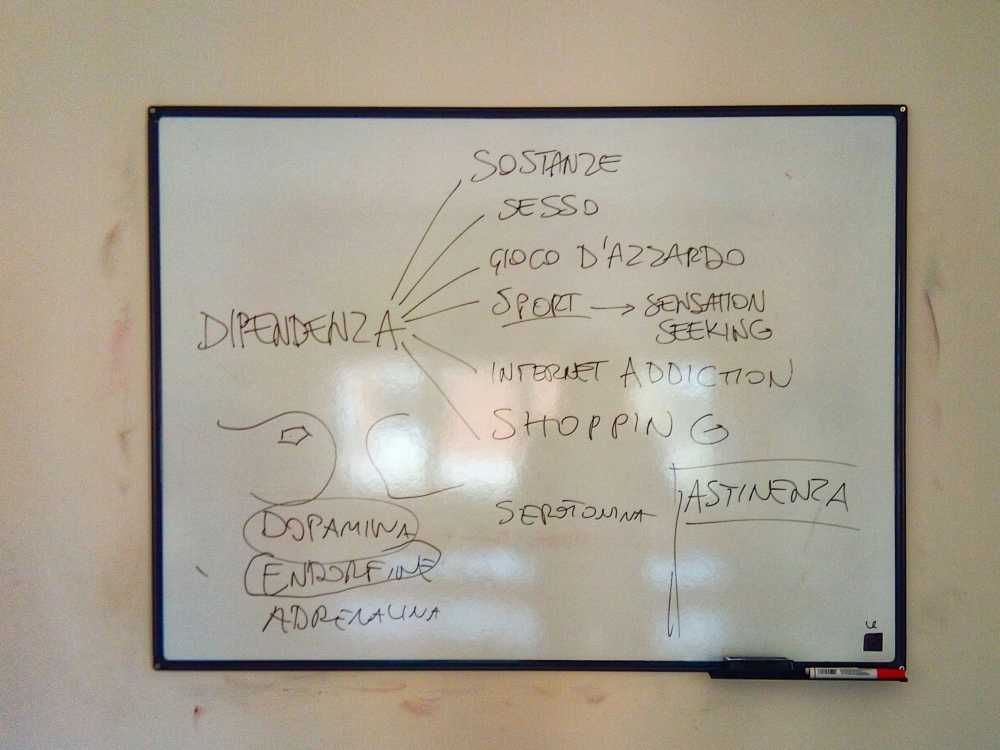 SOSTANZE
SESSO
GIOCO D'AZZARDO
DIPENDENZA
SPORT → SENSATION
SEEKING
INTERNET ADDICTION
SHOPPING
SEROTONINA
ASTINENZA
DOPAMINA
ENDORFINE
ADRENALINA